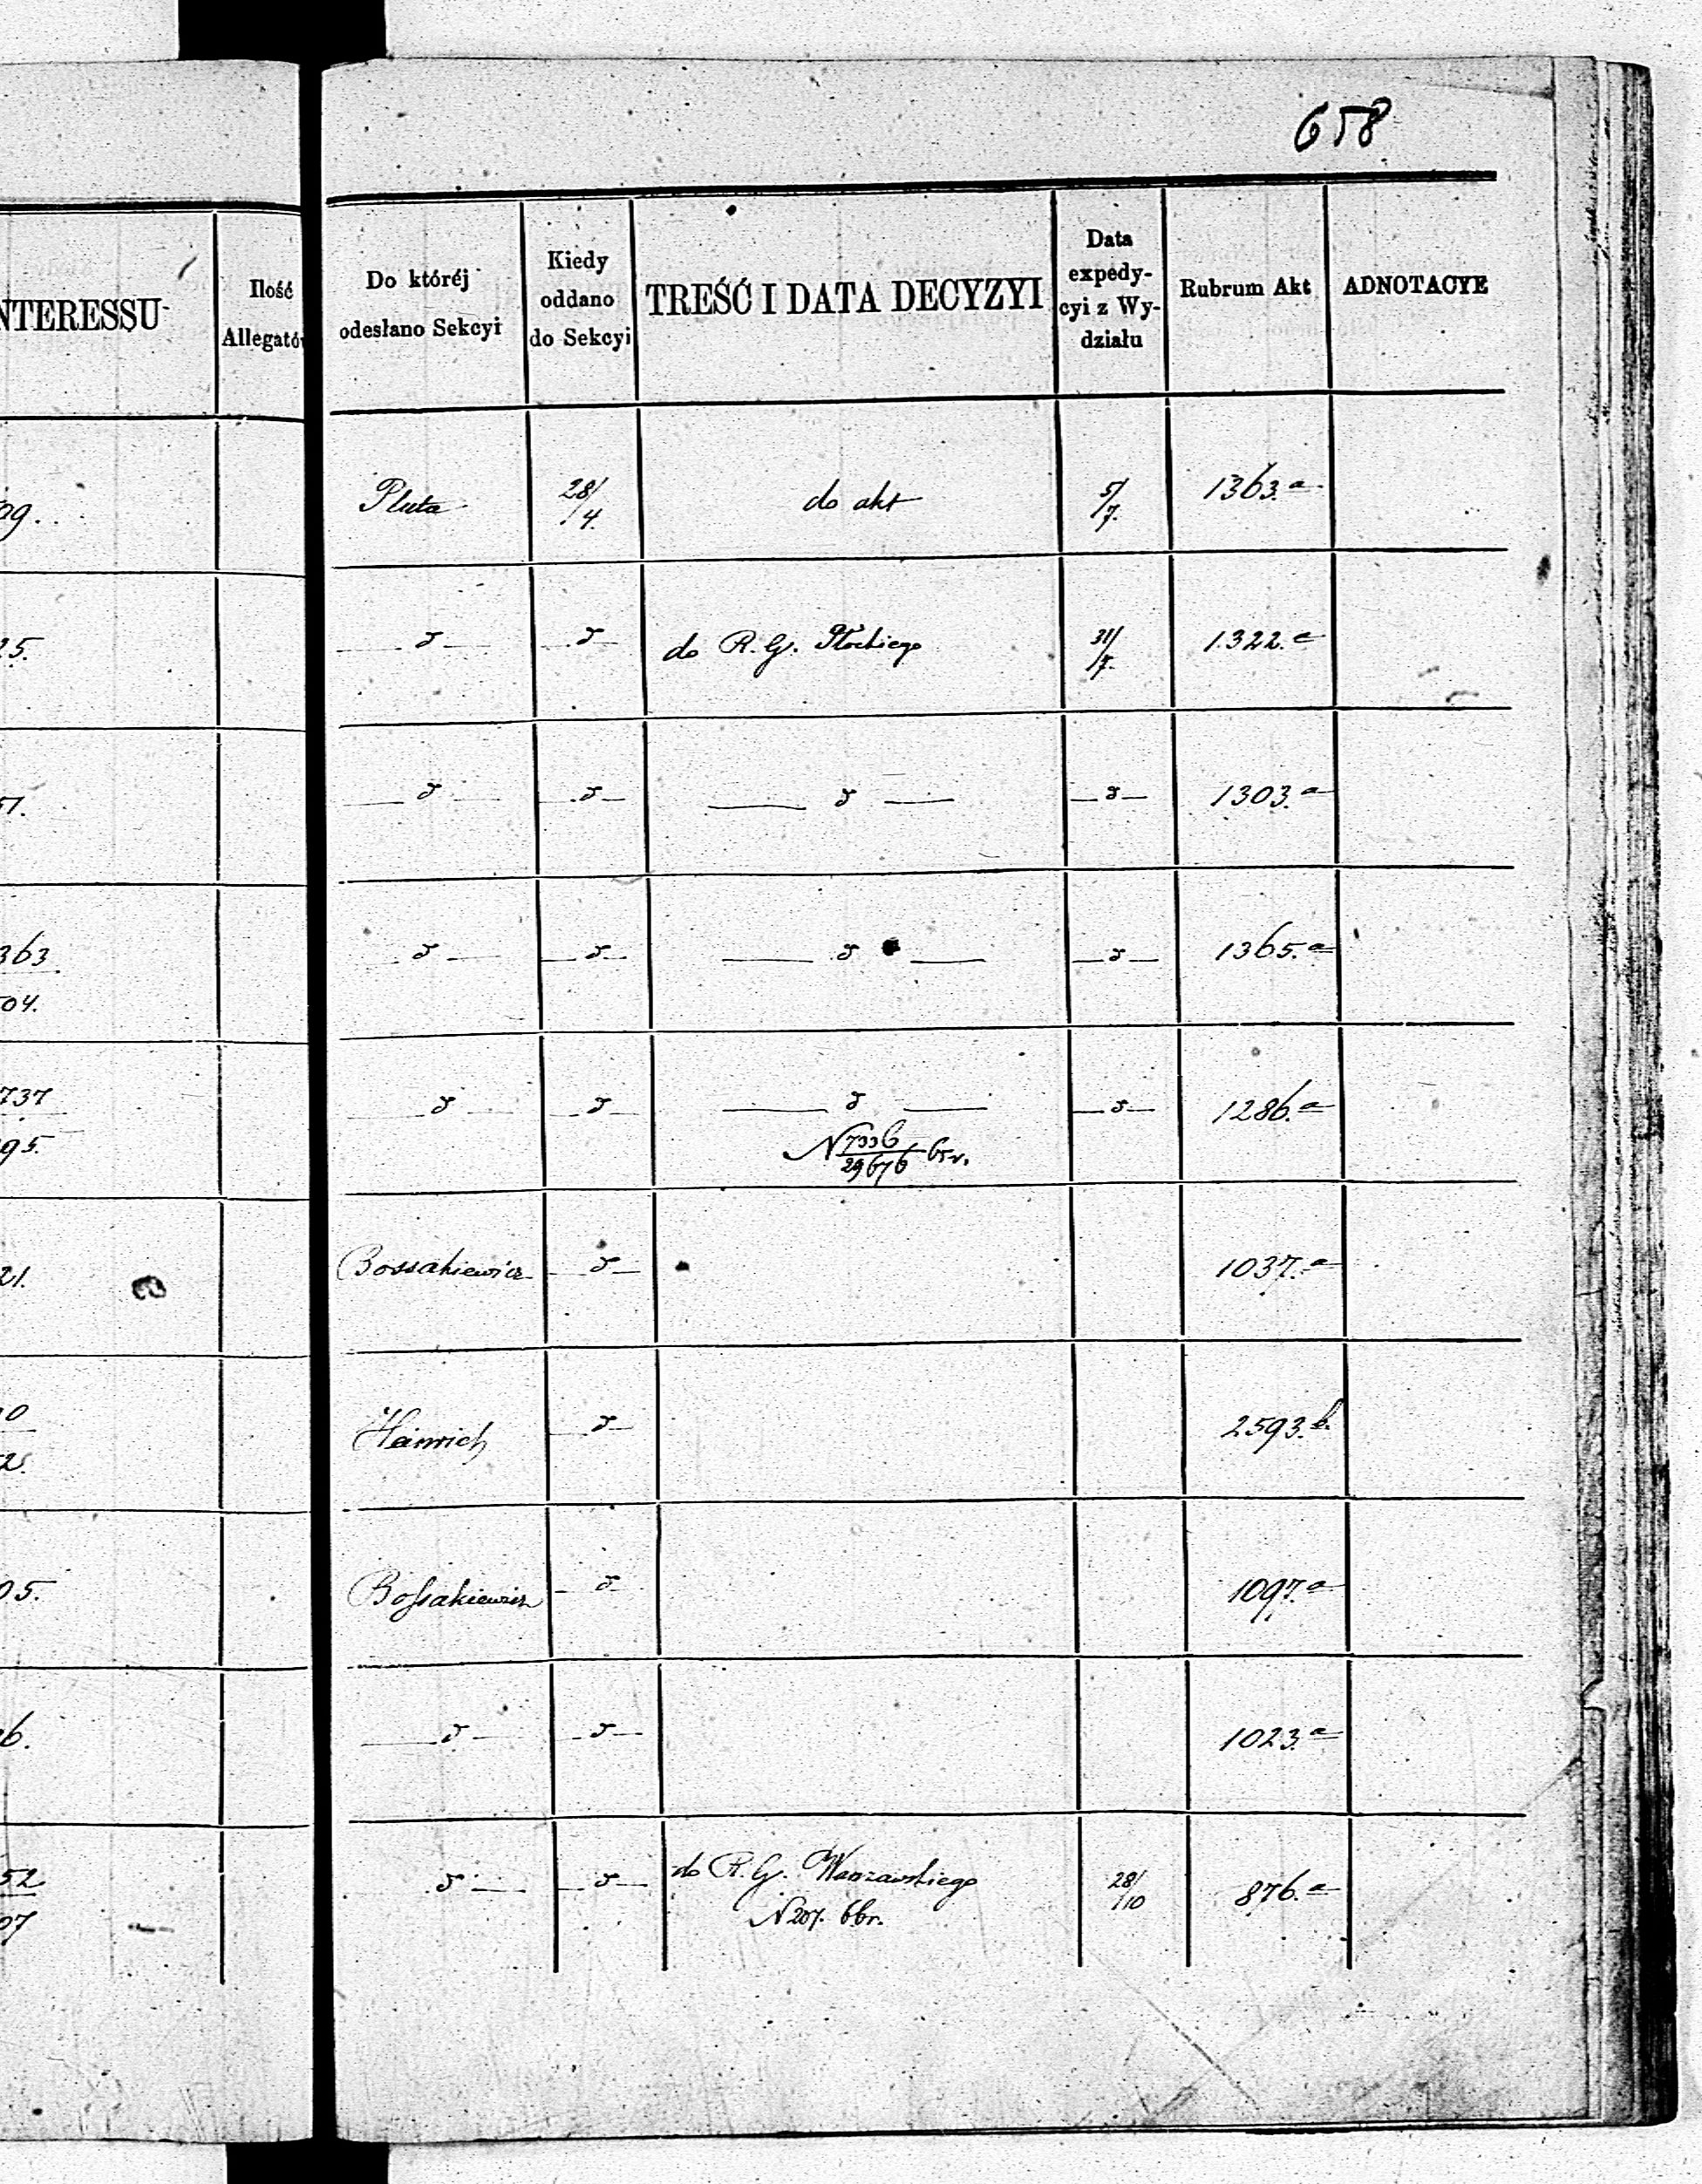 658
NTERESSU
Ilość
Allegató
Do któréj
odesłano Sekcyi
Kiedy
oddano
do Sekcyi
TREŚĆ I DATA DECYZYI
Data
expedy-
cyi z Wy-
działu
Rubrum Akt
ADNOTACYE
09. Pluta 28/4. do akt 5/7. 1363.a
25. —"— —"— do R. G. Płockiego 31/7. 1322.a
51. —"— —"— —"— —"— 1303.a
363
04.
—"— —"— —"— —"— 1365.a
737
95.
—"— —"— —"— —"— 1286.a
N 7336/29676 65 r.
21. Bossakiewicz —"— 1037.a
10
2.
Heinrich —"— 2593.b.
05. Boſsakiewicz —"— 1097.a
6. —"— —"— 1023.a
52
07
—"— —"— do R. G. Warszawskiego 28/10 876.a
N 207. 66 r.